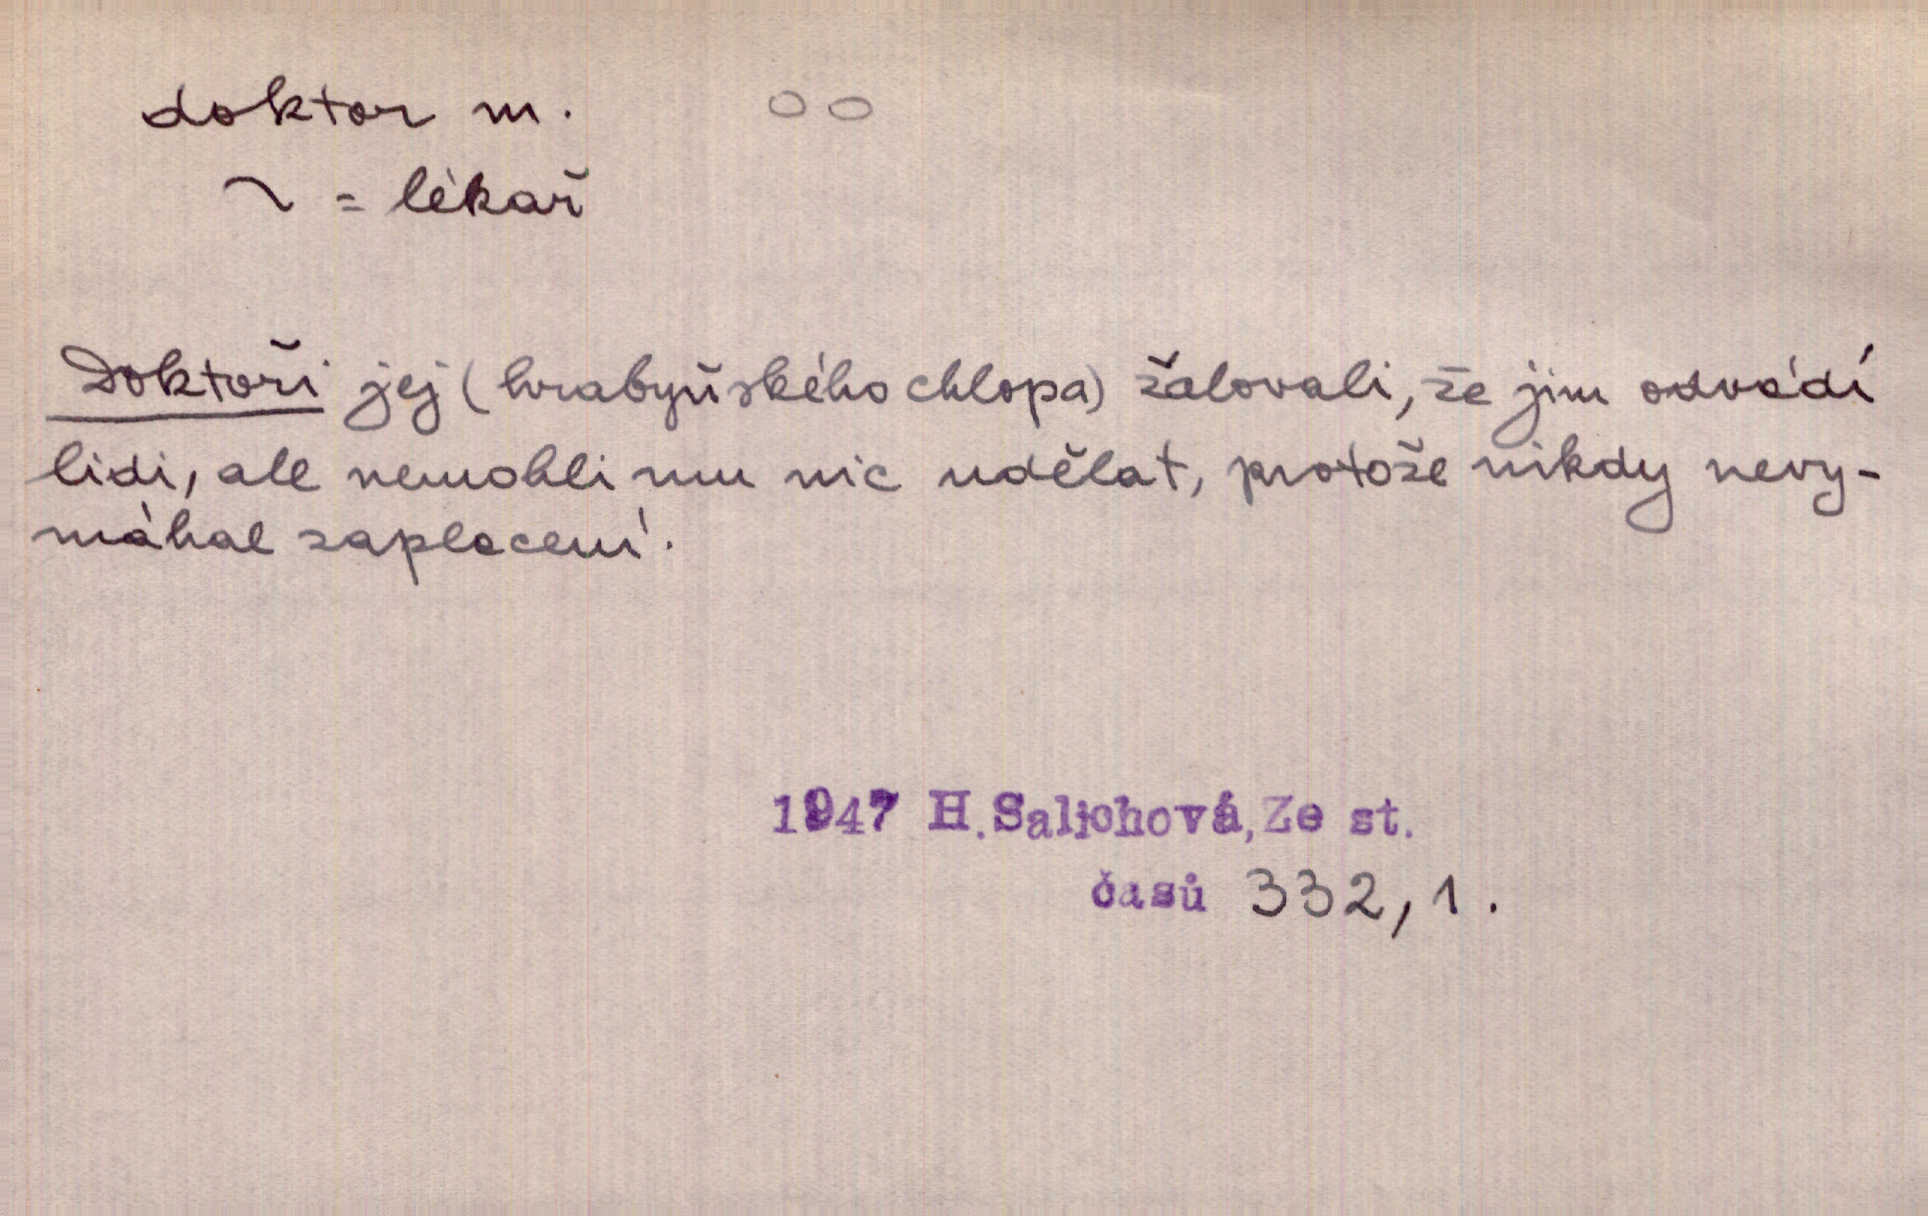 doktor m. OO
~ = lékař
Doktoři jej (hrabyňského chlopa) žalovali, že jim odvádí
lidi, ale nemohli mu nic udělat, protože nikdy nevy-
máhal zaplacení.
1947 H.Salichová, Ze st.
časů 332,1.